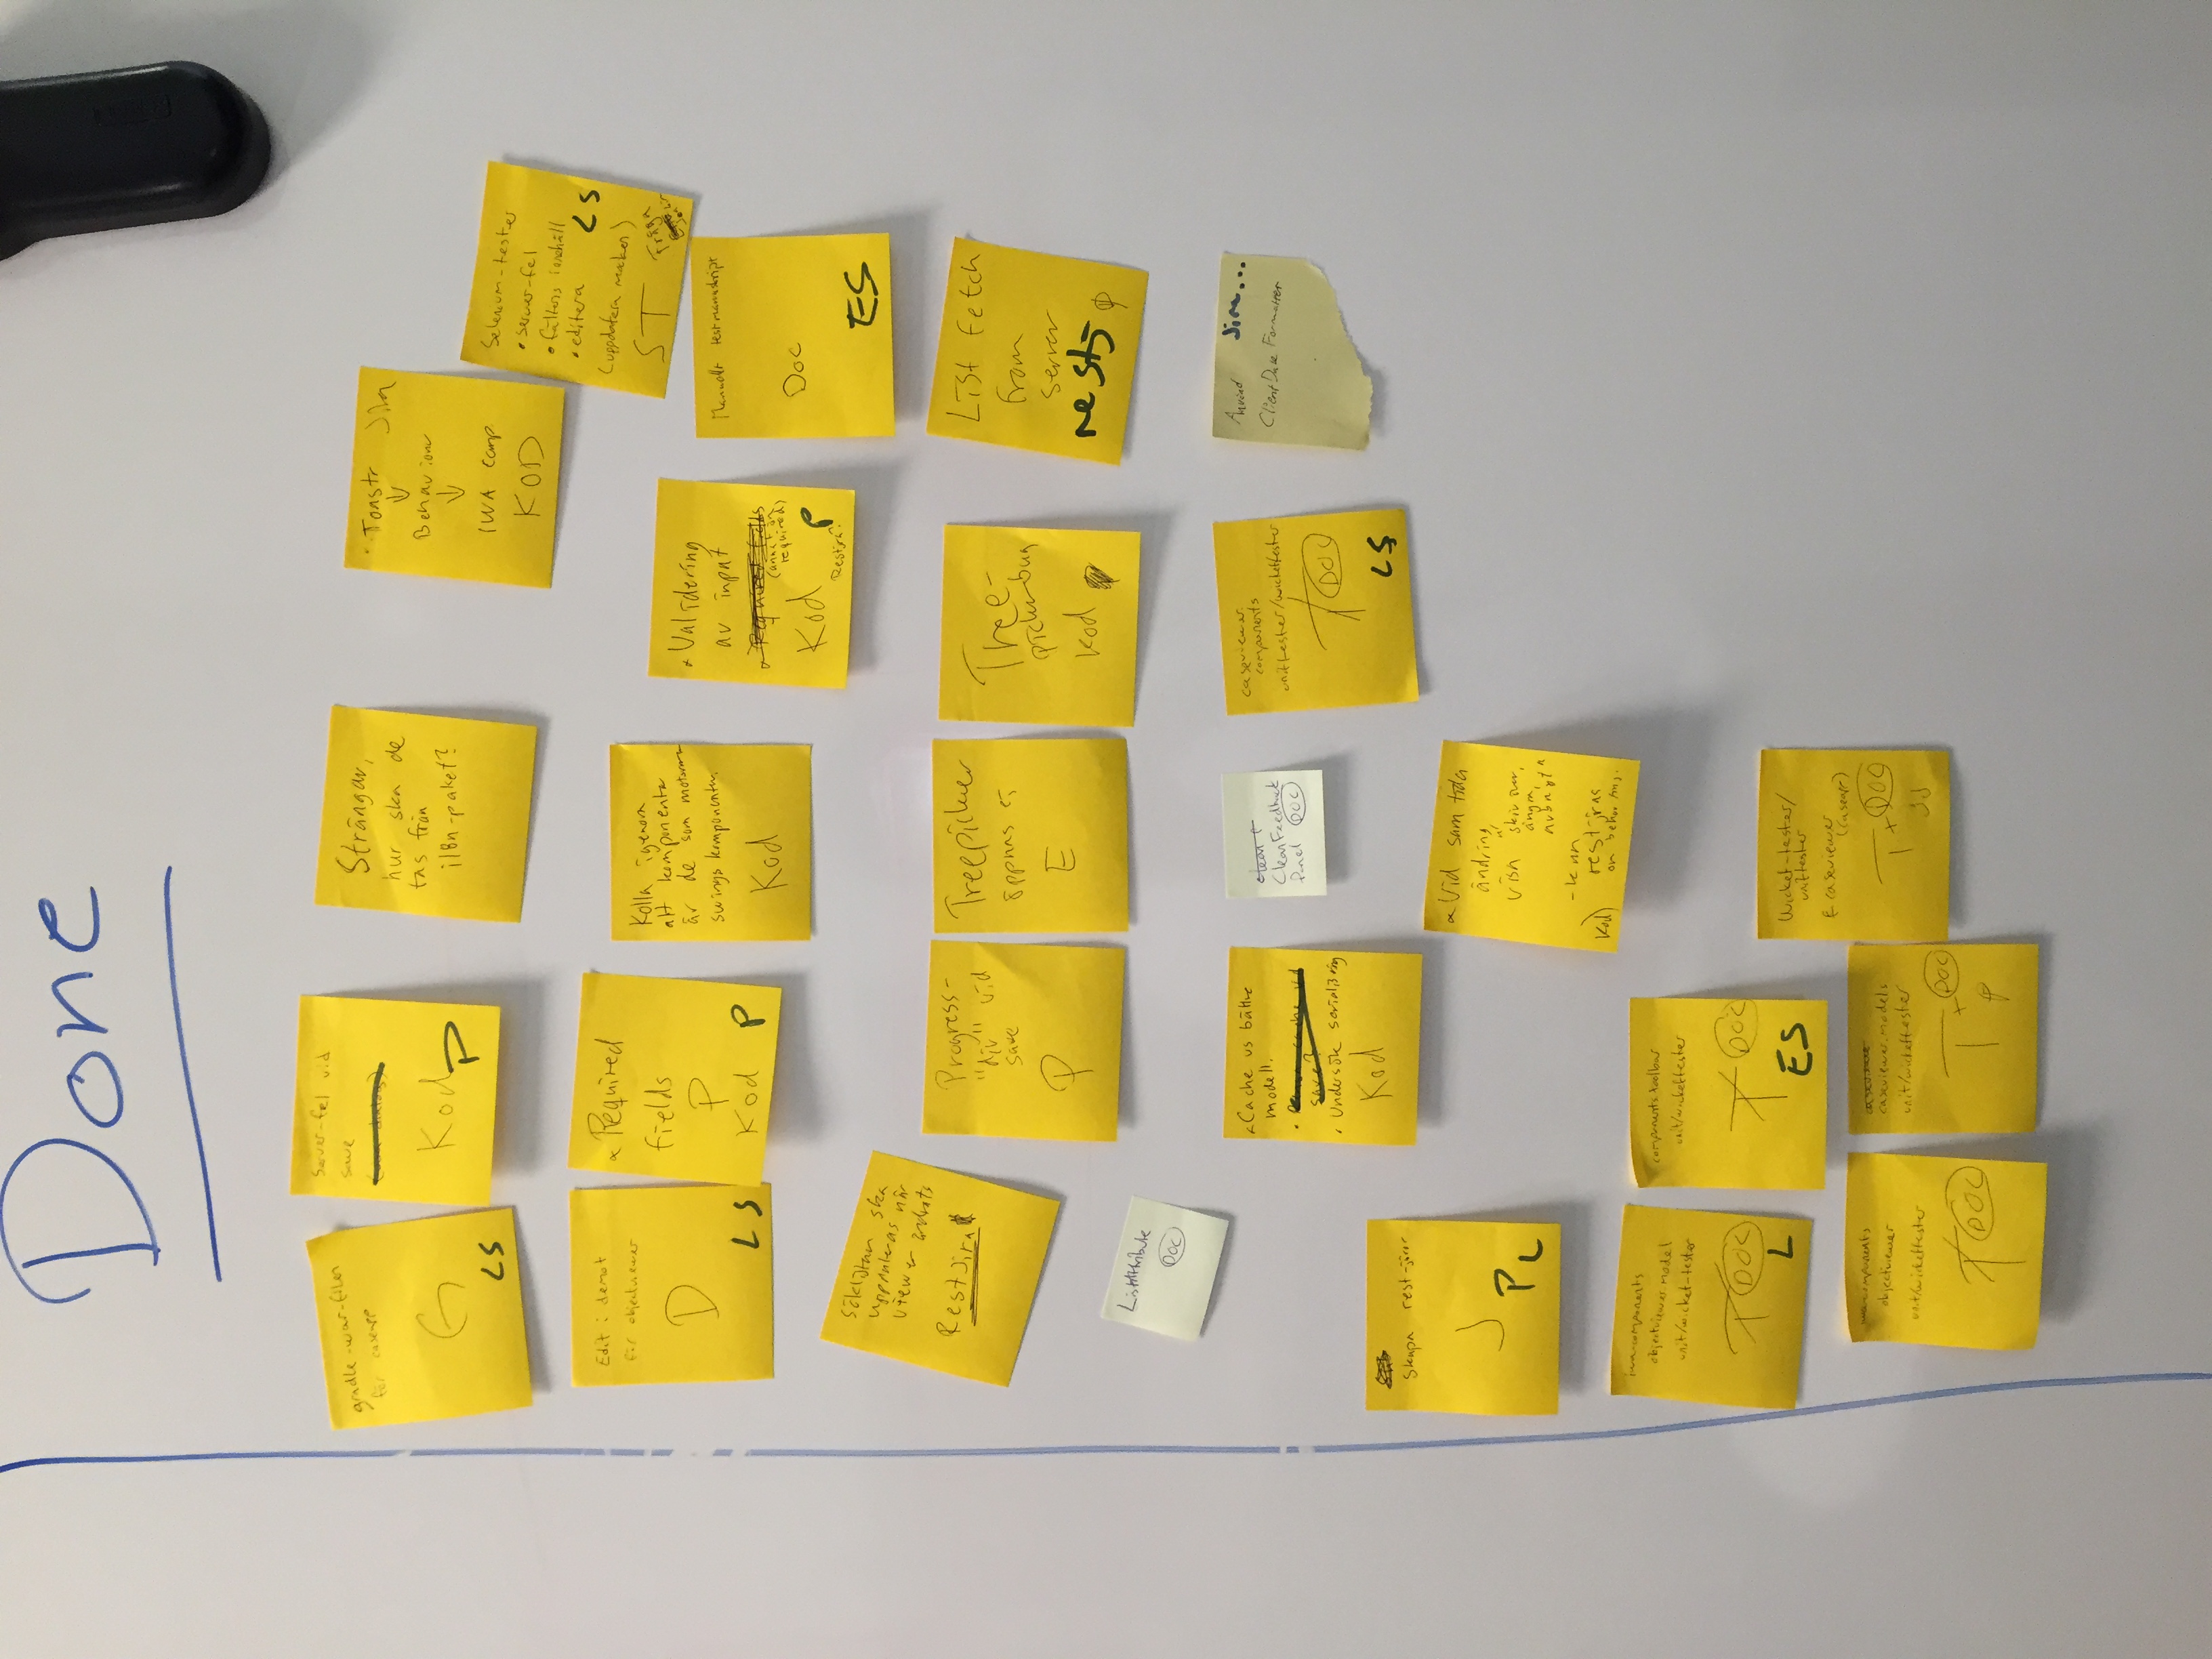 Done
gradle-war-filen
för caseapp
G
LS
Server-fel vid
save
Kod
P
Strängar,
hur ska de
tas från
i18n-paket?
Jira
Behaviour
IWA comp.
KOD
Selenium-tester
• server-fel
• fältens innehåll
• editera
LS
(uppdatera mocken)
ST
Fråga
Edit i demot
för objectviewer
D
LS
Required
fields
P
Kod P
Kolla igenom
att komponenter
är de som motsvarar
swings komponenter.
Kod
Validering
av input
Required fields
(annat än
required)
Kod P
Restjira?
Manuellt testmanuskript
Doc
ES
Söklistan ska
uppdateras när
viewer ändrats
RestJira
Progress-
"div" vid
save
P
Treepicker
öppnas ej
E
Tree-
pickerbug
Kod
List fetch
from
server
restj
ListAttribute
DOC
Cache vs bättre
modell.
save?
• Undersök serialisering
Kod
clean F
CleanFeedback
Panel DOC
caseviewer.
components
unittester/wickettester
T DOC
LS
Använd Jira...
ClientDateFormatter
Skapa rest-jiror
J
PL
Vid samtida
ändring,
visa "skriv över,
ångra,
avbryt"
-kan
restjiras
om behov finns.
Kod
iwa-components
objectviewer.model
unit/wicket-tester
T DOC
L
components.toolbar
unit/wickettester
T DOC
ES
Wicket-tester/
unittester
caseviewer
(caseapp)
T + DOC
JJ
iwa-components
objectviewer
unit/wickettester
T DOC
caseviewer.models
unit/wickettester
T + DOC
P